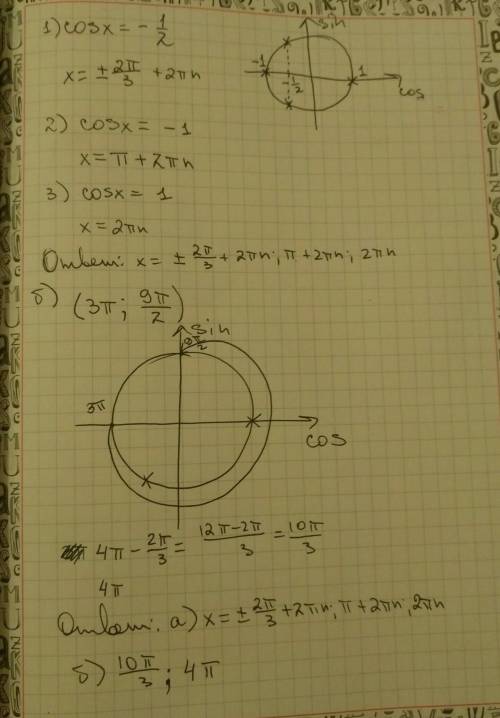 1) cosx = - 1/2
sin
-1
1
-1/2
cos
x = ± 2π/3 + 2πn
2) cosx = -1
x = π + 2πn
3) cosx = 1
x = 2πn
Ответ: x = ± 2π/3 + 2πn; π + 2πn; 2πn
б) (3π; 9π/2)
sin
9π/2
3π
cos
4π - 2π/3 = 12π-2π/3 = 10π/3
4π
Ответ: а) x = ± 2π/3 + 2πn; π + 2πn; 2πn
б) 10π/3; 4π